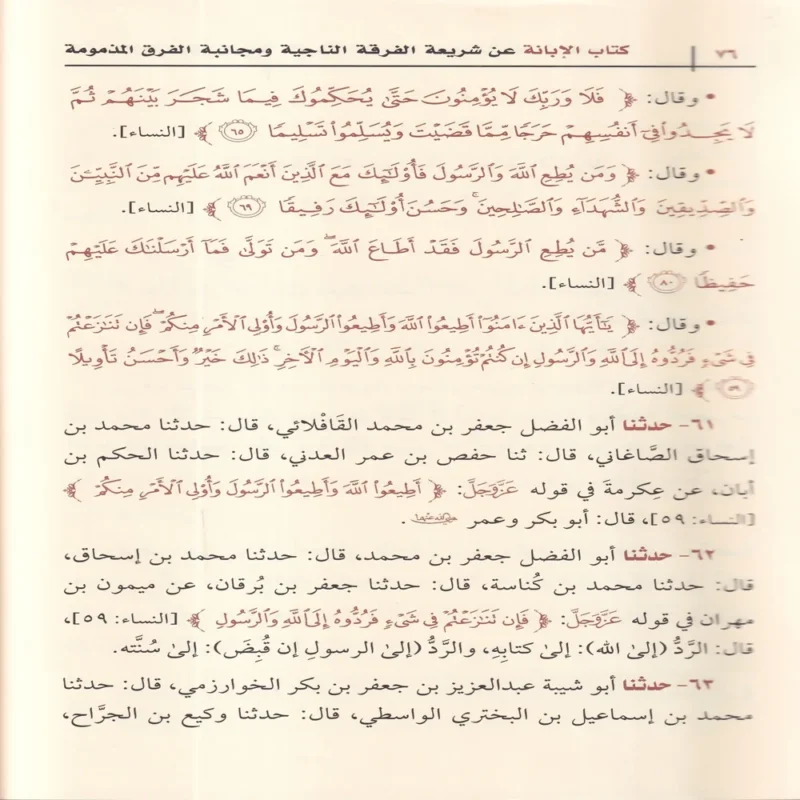 ٧٦ كتاب الإبانة عن شريعة الفرقة الناجية ومجانبة الفرق المذمومة
• وقال: ﴿ فَلَا وَرَبِّكَ لَا يُؤْمِنُونَ حَتَّىٰ يُحَكِّمُوكَ فِيمَا شَجَرَ بَيْنَهُمْ ثُمَّ
لَا يَجِدُوا فِي أَنفُسِهِمْ حَرَجًا مِّمَّا قَضَيْتَ وَيُسَلِّمُوا تَسْلِيمًا ٦٥ ﴾ [النساء].
• وقال: ﴿ وَمَن يُطِعِ اللَّهَ وَالرَّسُولَ فَأُولَٰئِكَ مَعَ الَّذِينَ أَنْعَمَ اللَّهُ عَلَيْهِم مِّنَ النَّبِيِّينَ
وَالصِّدِّيقِينَ وَالشُّهَدَاءِ وَالصَّالِحِينَ ۚ وَحَسُنَ أُولَٰئِكَ رَفِيقًا ٦٩ ﴾ [النساء].
• وقال: ﴿ مَّن يُطِعِ الرَّسُولَ فَقَدْ أَطَاعَ اللَّهَ ۖ وَمَن تَوَلَّىٰ فَمَا أَرْسَلْنَاكَ عَلَيْهِمْ
حَفِيظًا ٨٠ ﴾ [النساء].
• وقال: ﴿ يَا أَيُّهَا الَّذِينَ ءَامَنُوا أَطِيعُوا اللَّهَ وَأَطِيعُوا الرَّسُولَ وَأُولِي الْأَمْرِ مِنكُمْ ۖ فَإِن تَنَازَعْتُمْ
فِي شَيْءٍ فَرُدُّوهُ إِلَى اللَّهِ وَالرَّسُولِ إِن كُنتُمْ تُؤْمِنُونَ بِاللَّهِ وَالْيَوْمِ الْآخِرِ ۚ ذَٰلِكَ خَيْرٌ وَأَحْسَنُ تَأْوِيلًا
٥٩ ﴾ [النساء].
٦١- حدثنا أبو الفضل جعفر بن محمد القَافْلائي، قال: حدثنا محمد بن
إسحاق الصَّاغاني، قال: ثنا حفص بن عمر العدني، قال: حدثنا الحكم بن
أبان، عن عِكرمةَ في قوله عَزَّوَجَلَّ: ﴿ أَطِيعُوا اللَّهَ وَأَطِيعُوا الرَّسُولَ وَأُولِي الْأَمْرِ مِنكُمْ ﴾
[النساء: ٥٩]، قال: أبو بكر وعمر رضي الله عنهما.
٦٢- حدثنا أبو الفضل جعفر بن محمد، قال: حدثنا محمد بن إسحاق،
قال: حدثنا محمد بن كُناسة، قال: حدثنا جعفر بن بُرقان، عن ميمون بن
مهران في قوله عَزَّوَجَلَّ: ﴿ فَإِن تَنَازَعْتُمْ فِي شَيْءٍ فَرُدُّوهُ إِلَى اللَّهِ وَالرَّسُولِ ﴾ [النساء: ٥٩]،
قال: الرَّدُّ (إلىٰ الله): إلىٰ كتابِهِ، والرَّدُّ (إلىٰ الرسولِ إن قُبِضَ): إلىٰ سُنَّته.
٦٣- حدثنا أبو شيبة عبدالعزيز بن جعفر بن بكر الخوارزمي، قال: حدثنا
محمد بن إسماعيل بن البختري الواسطي، قال: حدثنا وكيع بن الجرَّاح،